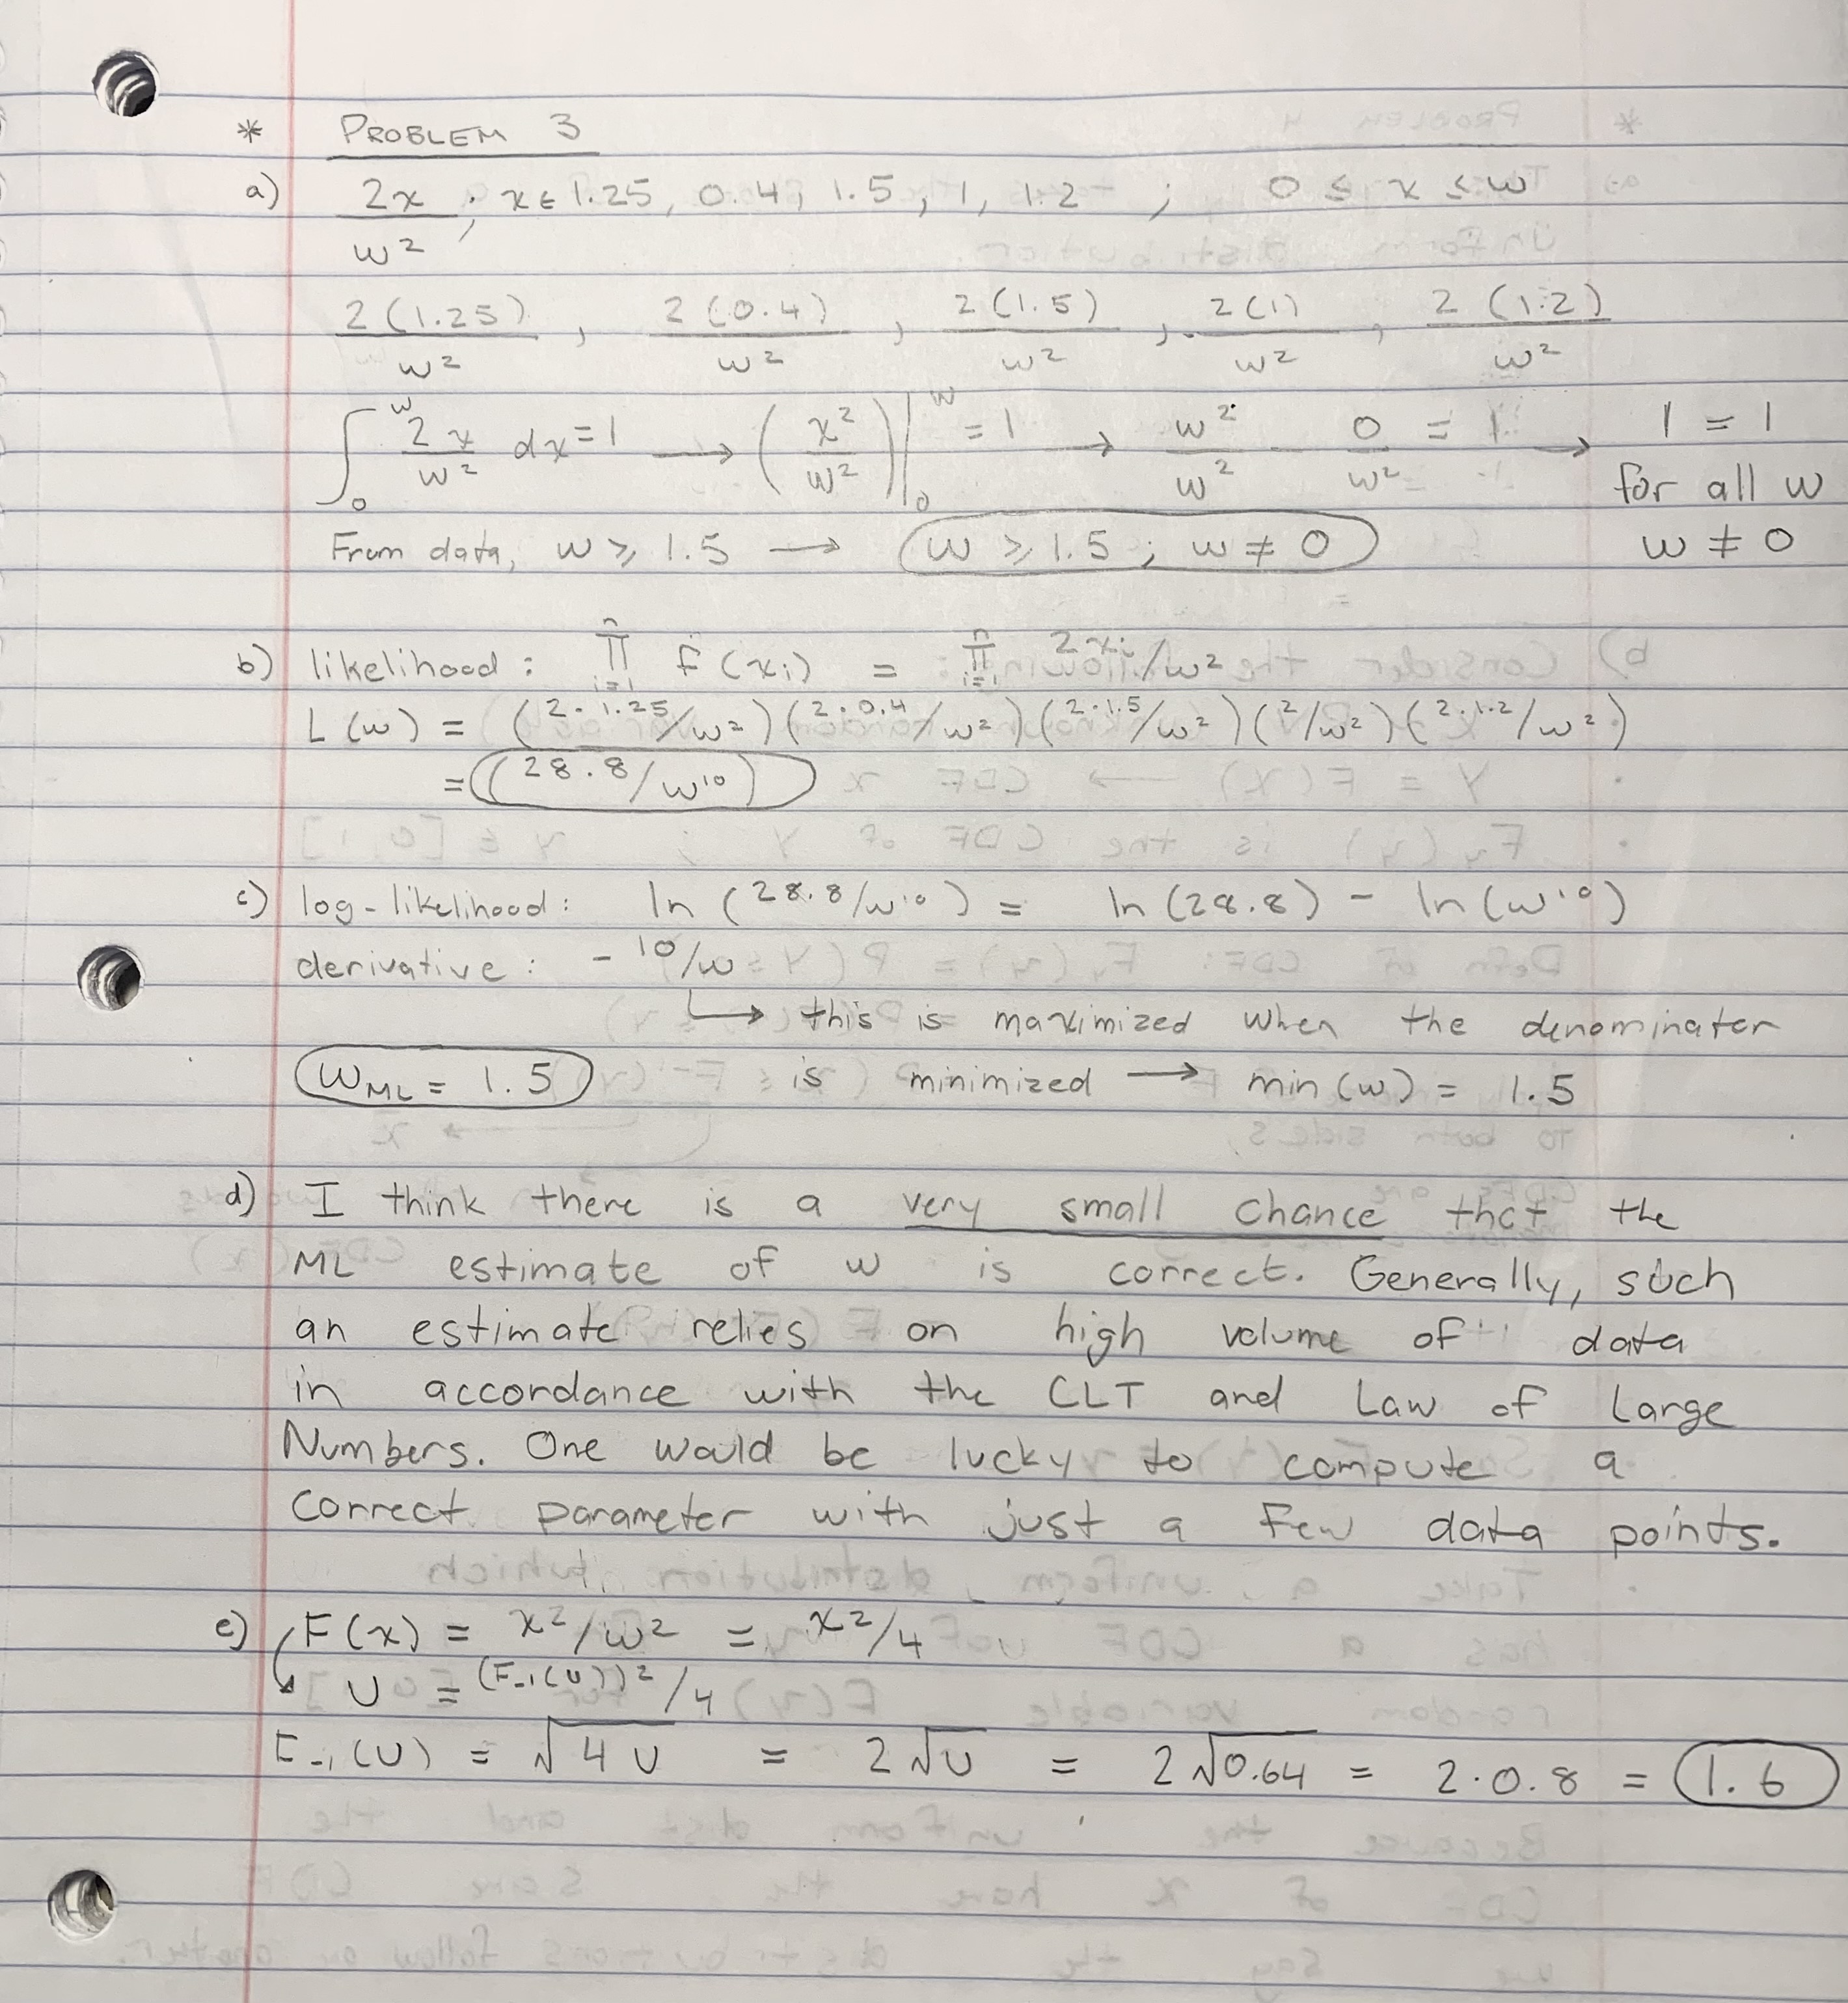 * PROBLEM 3
a) 2x/w² ; x ∈ 1.25, 0.4, 1.5, 1, 1.2 ; 0 ≤ x ≤ w
2(1.25)/w² , 2(0.4)/w² , 2(1.5)/w² , 2(1)/w² , 2(1.2)/w²
∫₀ʷ 2x/w² dx = 1 → (x²/w²)|₀ʷ = 1 → w²/w² - 0/w² = 1 → 1 = 1
for all w
From data, w ≥ 1.5 → w ≥ 1.5 ; w ≠ 0 w ≠ 0
b) likelihood: ∏ᵢ₌₁ⁿ f(xᵢ) = ∏ᵢ₌₁ⁿ 2xᵢ/w²
L(w) = (2·1.25/w²)(2·0.4/w²)(2·1.5/w²)(2/w²)(2·1.2/w²)
= (28.8/w¹⁰)
c) log-likelihood: ln(28.8/w¹⁰) = ln(28.8) - ln(w¹⁰)
derivative: -10/w
↳ this is maximized when the denominater
w_ML = 1.5 is minimized → min(w) = 1.5
d) I think there is a very small chance that the
ML estimate of w is correct. Generally, such
an estimate relies on high volume of data
in accordance with the CLT and Law of Large
Numbers. One would be lucky to compute a
correct parameter with just a few data points.
e) F(x) = x²/w² = x²/4
U = (F₋₁(U))²/4
F₋₁(U) = √4U = 2√U = 2√0.64 = 2·0.8 = 1.6